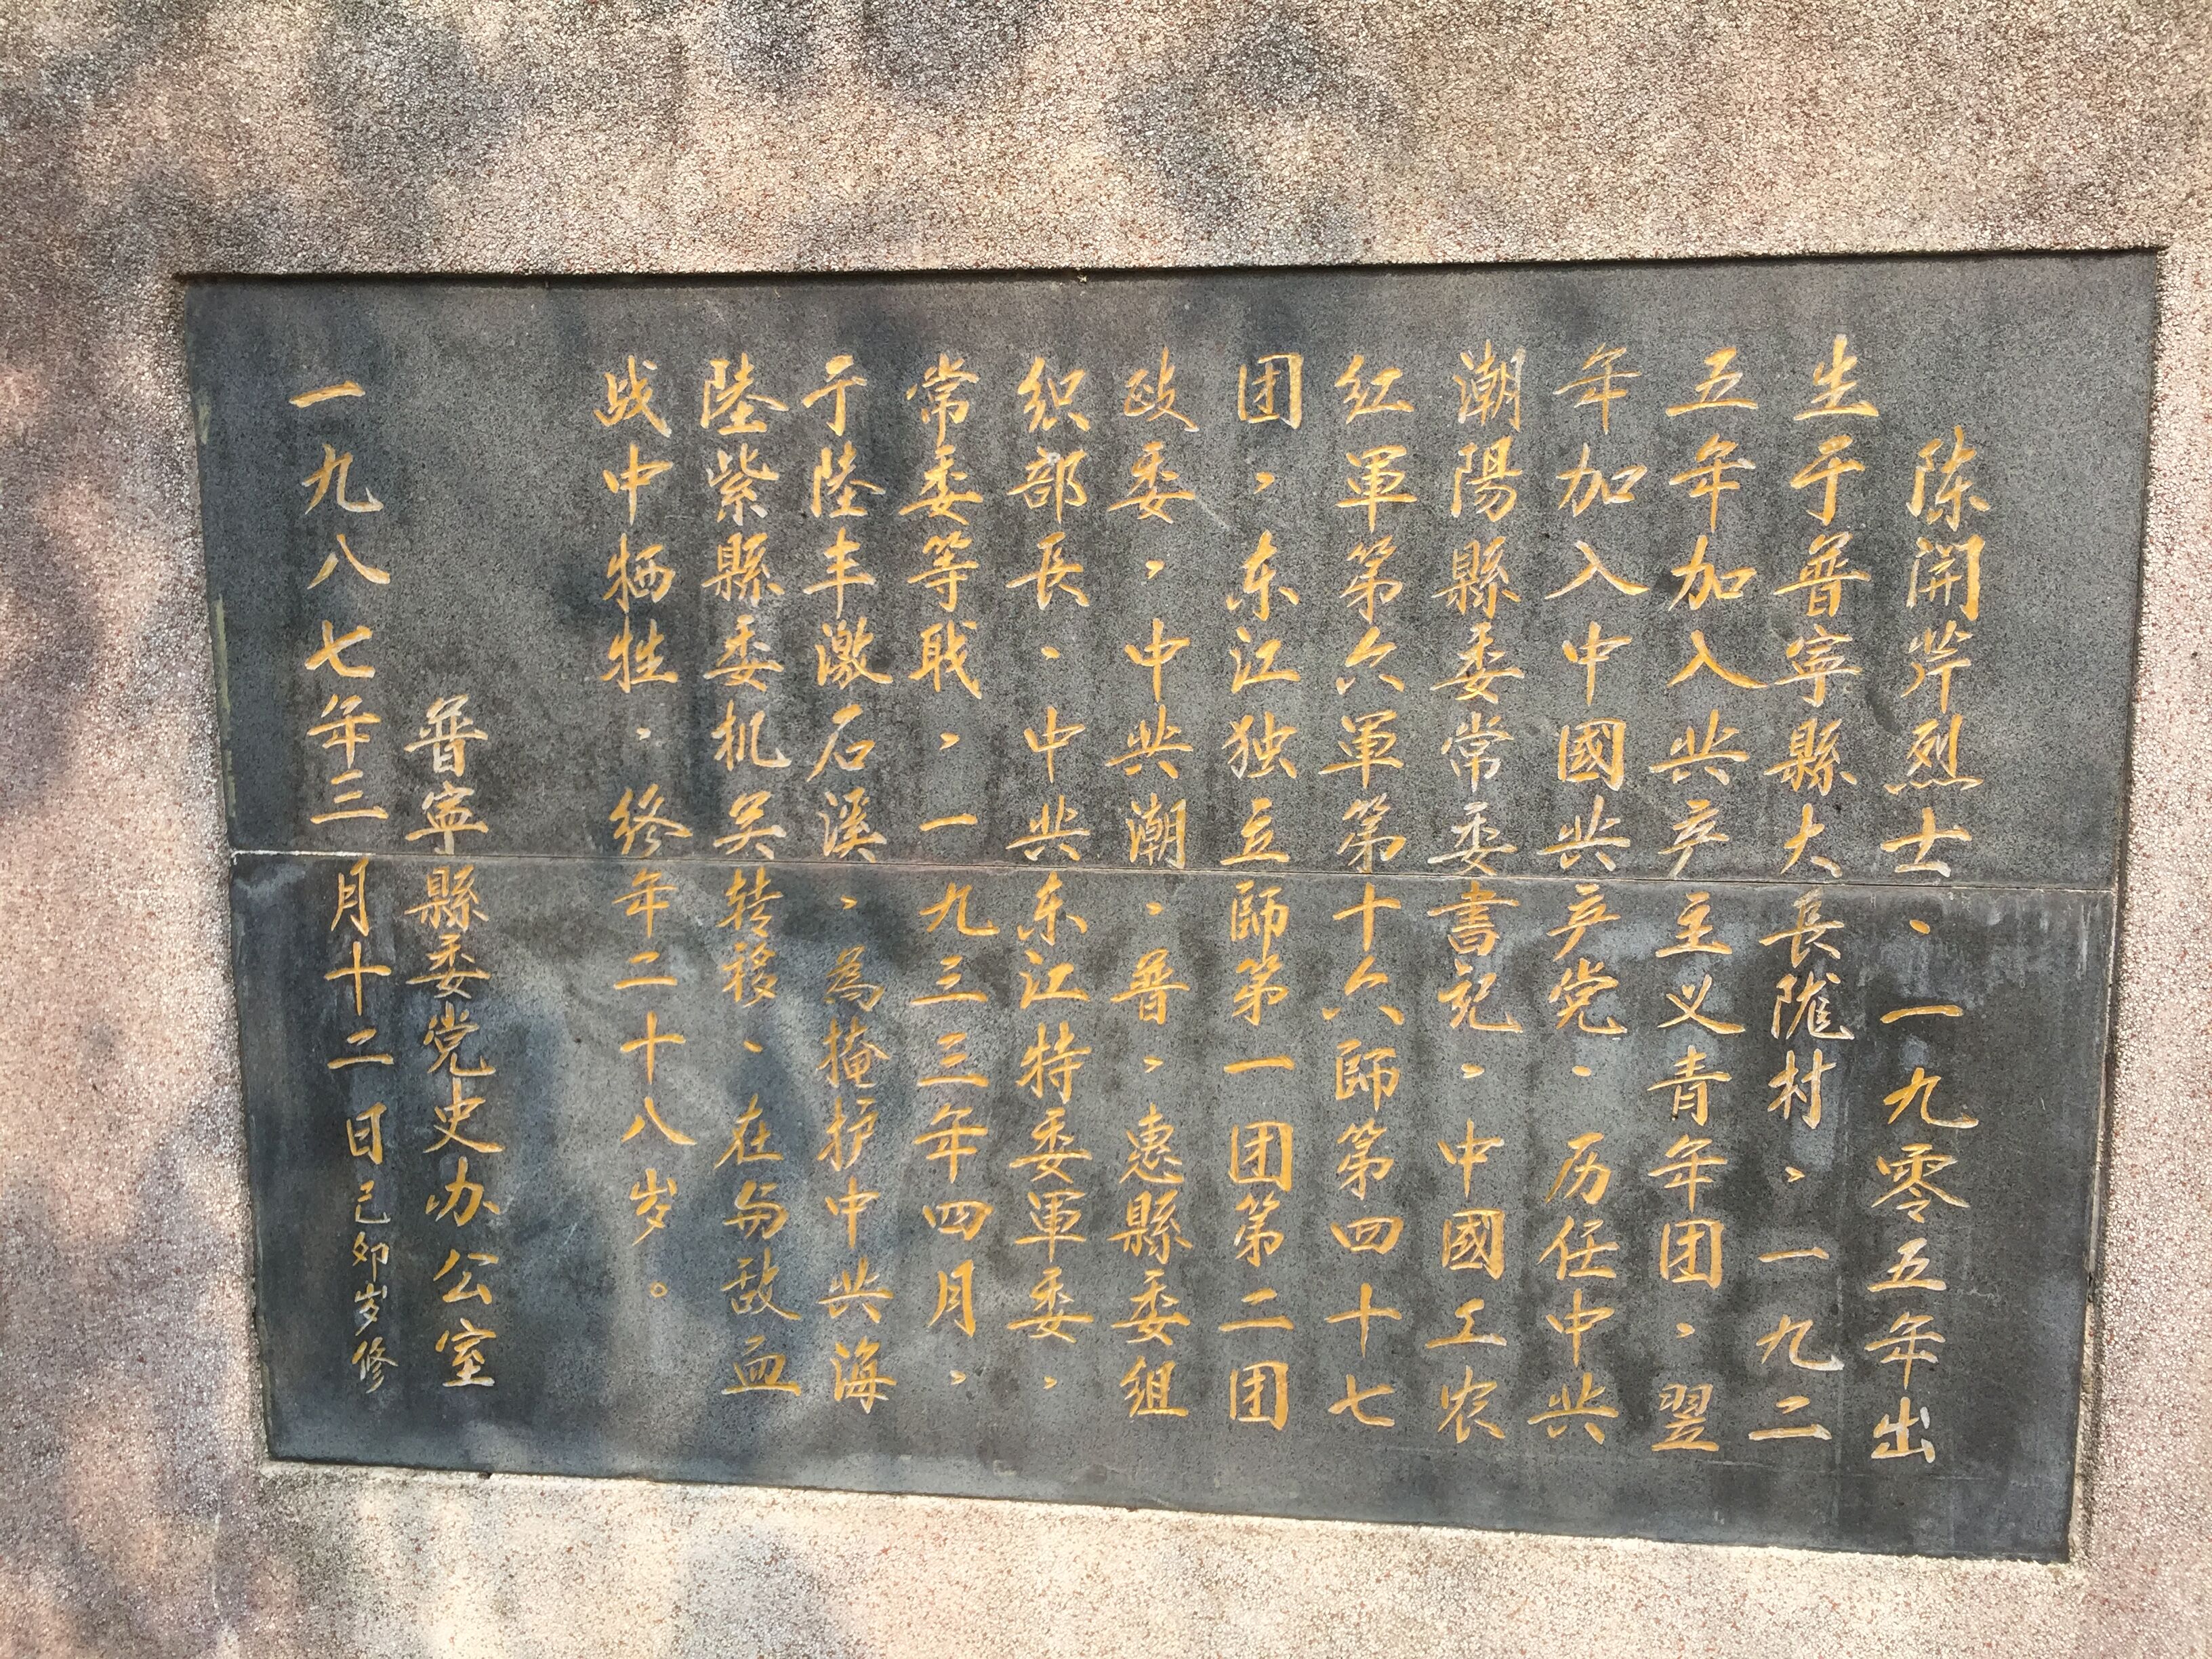 陈開芹烈士、一九零五年出
生于普寧縣大長隴村、一九二
五年加入共产主义青年团、翌
年加入中國共产党、历任中共
潮陽縣委常委書记、中國工农
红軍第六軍第十六師第四十七
团、东江独立師第一团第二团
政委、中共潮、普、惠縣委组
织部長、中共东江特委軍委、
常委等职、一九三三年四月、
于陸丰激石溪、為掩护中共海
陸紫縣委机关转移、在与敌血
战中牺牲、终年二十八岁。
普寧縣委党史办公室
一九八七年三月十二日己卯岁修